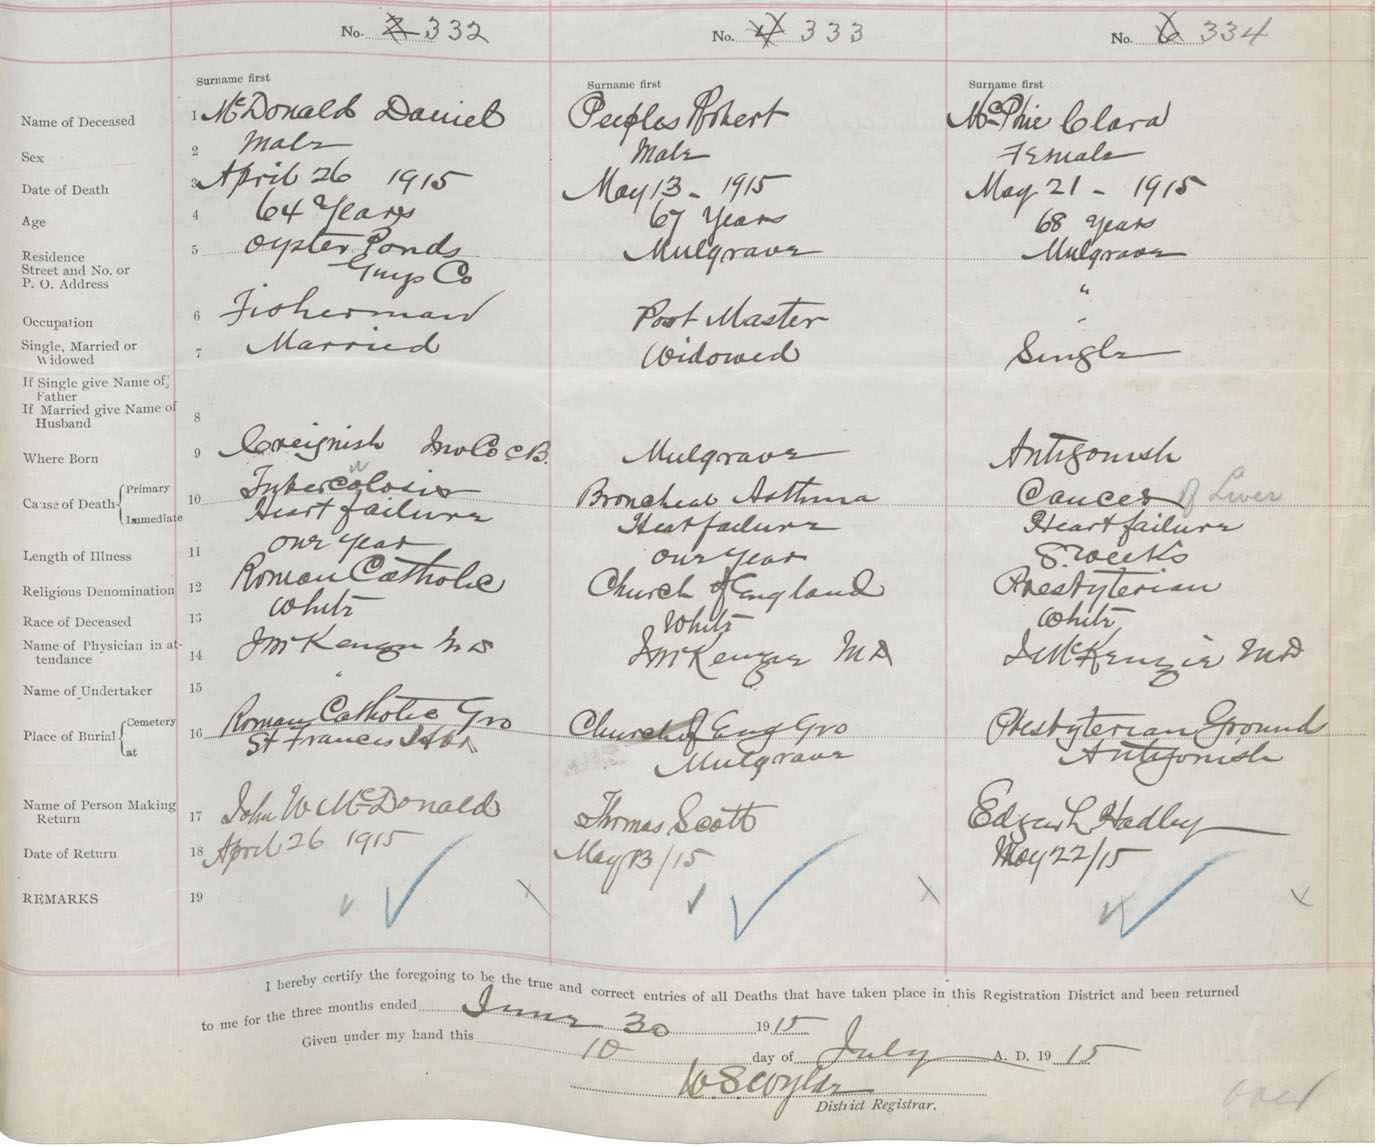 No. 3 332 No. 4 333 No. 6 334
Surname first Surname first Surname first
Name of Deceased 1 McDonald Daniel Peeples Robert McPhie Clara
Sex 2 Male Male Female
Date of Death 3 April 26 1915 May 13 - 1915 May 21 - 1915
Age 4 64 Years 67 Years 68 Years
Residence 5 Oyster Ponds Mulgrave Mulgrave
Street and No. or
P. O. Address Guys Co "
Occupation 6 Fisherman Post Master
Single, Married or
Widowed 7 Married Widowed Single
If Single give Name of
Father
If Married give Name of
Husband 8
Where Born 9 Creignish Inv Co C B. Mulgrave Antigonish
Cause of Death Primary 10 Tubercolosis Broncheal Asthma Cancer of Liver
Immediate Heart failure Heart failure Heart failure
Length of Illness 11 one year one year 8. weeks
Religious Denomination 12 Roman Catholic Church of England Presbyterian
Race of Deceased 13 White White White
Name of Physician in at-
tendance 14 J McKenzie MD J McKenzie MD J McKenzie MD
Name of Undertaker 15 "
Place of Burial Cemetery 16 Roman Catholic Gro Church of Eng Gro Presbyterian Ground
at St Francis Mulgrave Antigonish
Name of Person Making
Return 17 John W McDonald Thomas Scott Edgar L. Hadley
Date of Return 18 April 26 1915 May 13/15 May 22/15
REMARKS 19
I hereby certify the foregoing to be the true and correct entries of all Deaths that have taken place in this Registration District and been returned
to me for the three months ended June 30 1915
Given under my hand this 10 day of July A. D. 1915
District Registrar.
over